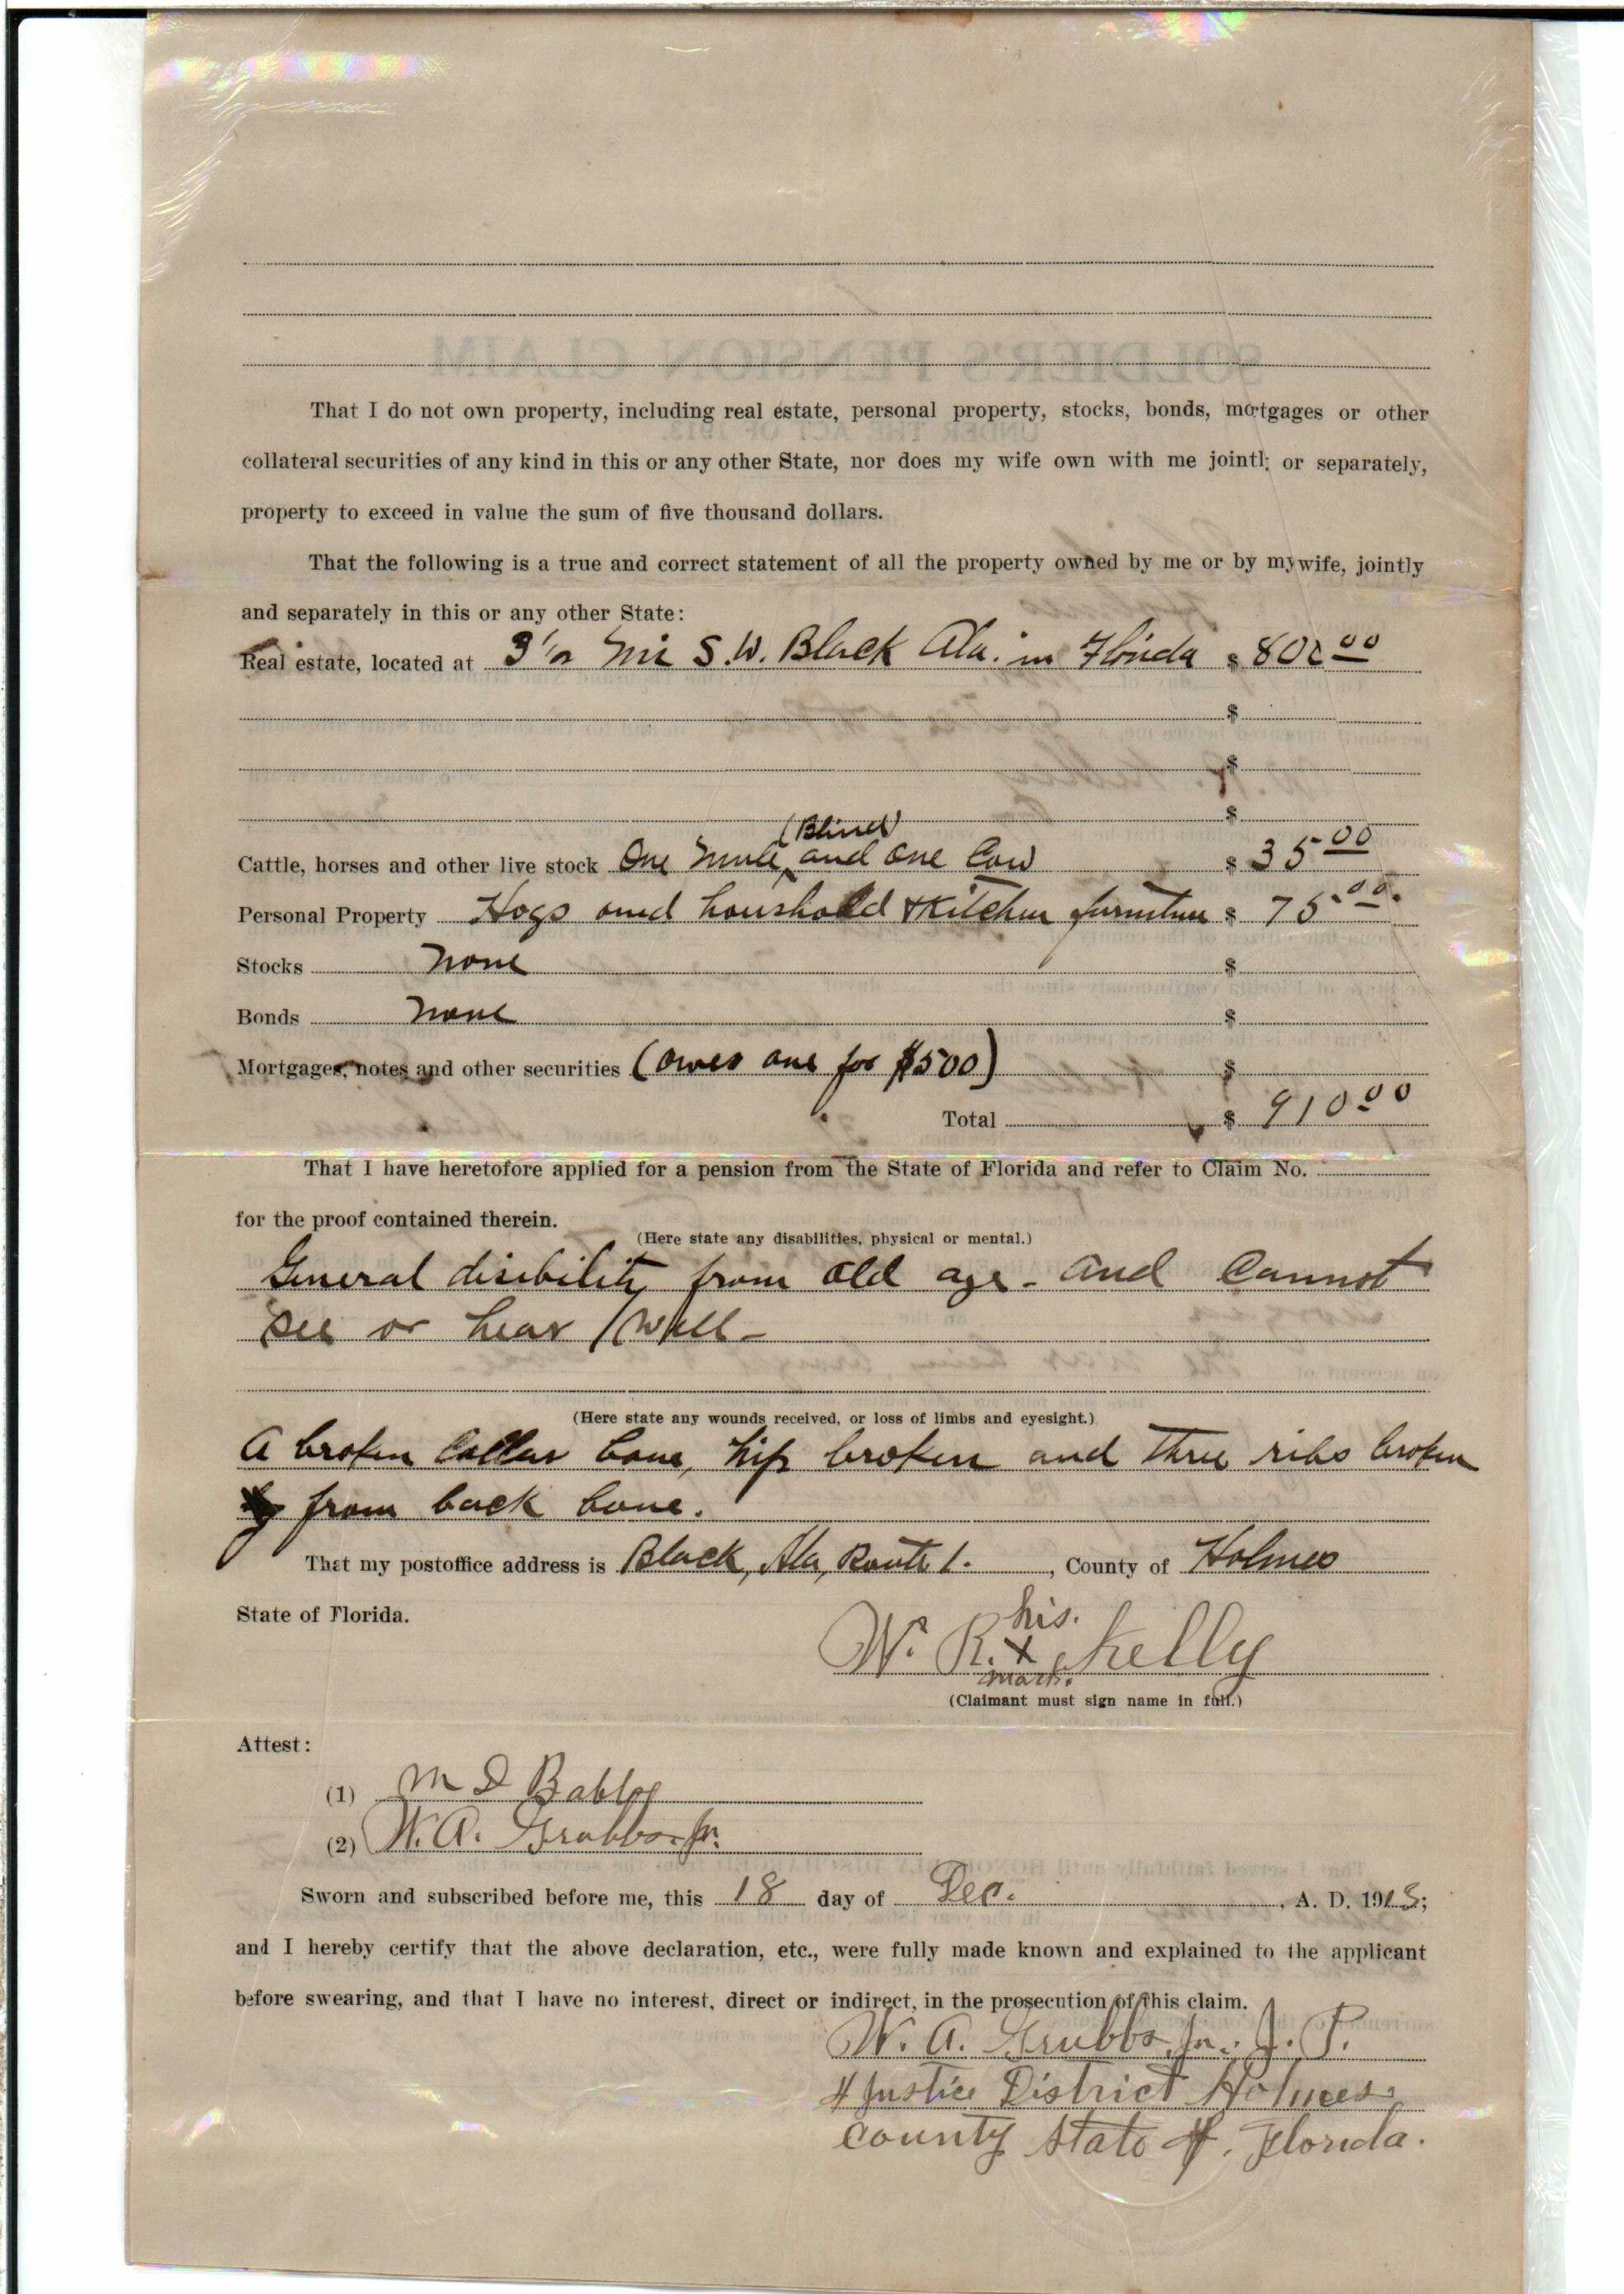 That I do not own property, including real estate, personal property, stocks, bonds, mortgages or other
collateral securities of any kind in this or any other State, nor does my wife own with me jointl; or separately,
property to exceed in value the sum of five thousand dollars.
That the following is a true and correct statement of all the property owned by me or by my wife, jointly
and separately in this or any other State:
Real estate, located at 3 1/2 mi S.W. Black Ala. in Florida $ 800 00
$
$
$
(Blind)
Cattle, horses and other live stock One mule, and one Cow $ 35 00
Personal Property Hogs and houshold & Kitchen furniture $ 75 00
Stocks none $
Bonds none $
Mortgages, notes and other securities (owes one for $500) $
Total $ 910 00
That I have heretofore applied for a pension from the State of Florida and refer to Claim No.
for the proof contained therein.
(Here state any disabilities, physical or mental.)
General disibility from old age - and Cannot
see or hear well -
(Here state any wounds received, or loss of limbs and eyesight.)
A broken Collar bone, hip broken and three ribs broken
from back bone.
That my postoffice address is Black, Ala, Route 1. , County of Holmes
State of Florida.
his.
W. R. X Kelly
mark.
(Claimant must sign name in full.)
Attest:
(1) M D
(2) W. A. Grubbs Jr.
Sworn and subscribed before me, this 18 day of Dec. , A. D. 1913;
and I hereby certify that the above declaration, etc., were fully made known and explained to the applicant
before swearing, and that I have no interest, direct or indirect, in the prosecution of this claim.
W. A. Grubbs, Jr. J. P.
Justice District Holmes
County State of. Florida.